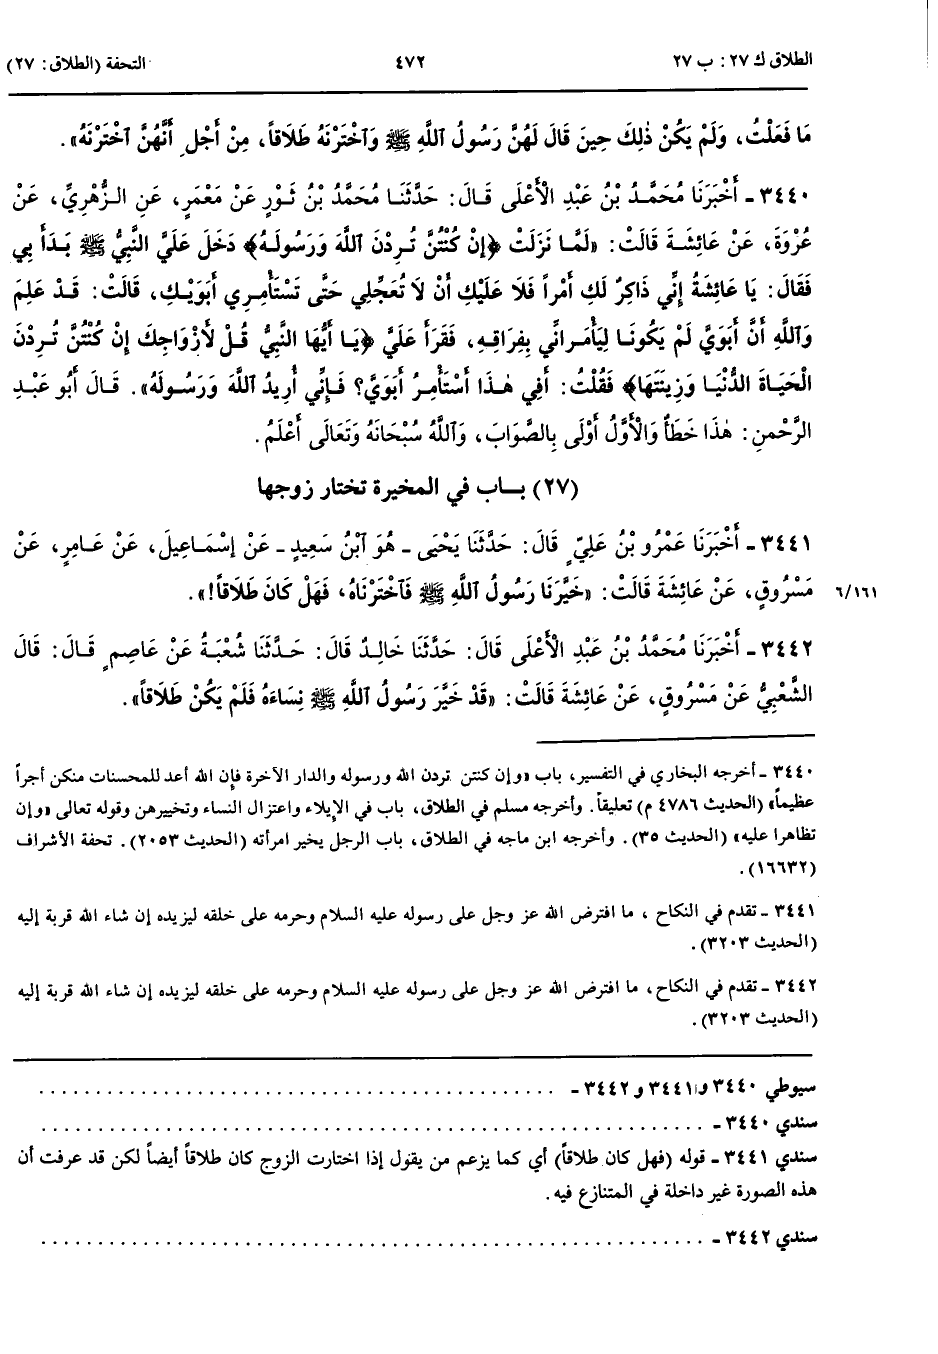 الطلاق ك ٢٧ : ب ٢٧
٤٧٢
التحفة (الطلاق : ٢٧)
مَا فَعَلْتُ، وَلَمْ يَكُنْ ذٰلِكَ حِينَ قَالَ لَهُنَّ رَسُولُ ٱللَّهِ ﷺ وَٱخْتَرْنَهُ طَلَاقاً، مِنْ أَجْلِ أَنَّهُنَّ ٱخْتَرْنَهُ».
٣٤٤٠ ـ أَخْبَرَنَا مُحَمَّدُ بْنُ عَبْدِ الْأَعْلَى قَالَ: حَدَّثَنَا مُحَمَّدُ بْنُ ثَوْرٍ عَنْ مَعْمَرٍ، عَنِ الزُّهْرِيِّ، عَنْ
عُرْوَةَ، عَنْ عَائِشَةَ قَالَتْ: «لَمَّا نَزَلَتْ ﴿إِنْ كُنْتُنَّ تُرِدْنَ اللَّهَ وَرَسُولَهُ﴾ دَخَلَ عَلَيَّ النَّبِيُّ ﷺ بَدَأَ بِي
فَقَالَ: يَا عَائِشَةُ إِنِّي ذَاكِرٌ لَكِ أَمْراً فَلَا عَلَيْكِ أَنْ لَا تُعَجِّلِي حَتَّى تَسْتَأْمِرِي أَبَوَيْكِ، قَالَتْ: قَدْ عَلِمَ
وَٱللَّهِ أَنَّ أَبَوَيَّ لَمْ يَكُونَا لِيَأْمُرَانِّي بِفِرَاقِهِ، فَقَرَأَ عَلَيَّ ﴿يَا أَيُّهَا النَّبِيُّ قُلْ لِأَزْوَاجِكَ إِنْ كُنْتُنَّ تُرِدْنَ
الْحَيَاةَ الدُّنْيَا وَزِينَتَهَا﴾ فَقُلْتُ: أَفِي هٰذَا أَسْتَأْمِرُ أَبَوَيَّ؟ فَإِنِّي أُرِيدُ اللَّهَ وَرَسُولَهُ». قَالَ أَبُو عَبْدِ
الرَّحْمنِ: هٰذَا خَطَأٌ وَالْأَوَّلُ أَوْلَى بِالصَّوَابَ، وَٱللَّهُ سُبْحَانَهُ وَتَعَالَى أَعْلَمُ.
(٢٧) بـاب في المخيرة تختار زوجها
٣٤٤١ ـ أَخْبَرَنَا عَمْرُو بْنُ عَلِيٍّ قَالَ: حَدَّثَنَا يَحْيَى ـ هُوَ ٱبْنُ سَعِيدٍ ـ عَنْ إِسْمَاعِيلَ، عَنْ عَامِرٍ، عَنْ
مَسْرُوقٍ، عَنْ عَائِشَةَ قَالَتْ: «خَيَّرَنَا رَسُولُ ٱللَّهِ ﷺ فَٱخْتَرْنَاهُ، فَهَلْ كَانَ طَلَاقاً!».
٦/١٦١
٣٤٤٢ ـ أَخْبَرَنَا مُحَمَّدُ بْنُ عَبْدِ الْأَعْلَى قَالَ: حَدَّثَنَا خَالِدٌ قَالَ: حَدَّثَنَا شُعْبَةُ عَنْ عَاصِمٍ قَالَ: قَالَ
الشَّعْبِيُّ عَنْ مَسْرُوقٍ، عَنْ عَائِشَةَ قَالَتْ: «قَدْ خَيَّرَ رَسُولُ اللَّهِ ﷺ نِسَاءَهُ فَلَمْ يَكُنْ طَلَاقاً».
٣٤٤٠ ـ أخرجه البخاري في التفسير، باب «وإن كنتن تردن الله ورسوله والدار الآخرة فإن الله أعد للمحسنات منكن أجراً
عظيماً» (الحديث ٤٧٨٦ م) تعليقاً. وأخرجه مسلم في الطلاق، باب في الإيلاء واعتزال النساء وتخييرهن وقوله تعالى «وإن
تظاهرا عليه» (الحديث ٣٥). وأخرجه ابن ماجه في الطلاق، باب الرجل يخير امرأته (الحديث ٢٠٥٣). تحفة الأشراف
(١٦٦٣٢).
٣٤٤١ ـ تقدم في النكاح، ما افترض الله عز وجل على رسوله عليه السلام وحرمه على خلقه ليزيده إن شاء الله قربة إليه
(الحديث ٣٢٠٣).
٣٤٤٢ ـ تقدم في النكاح، ما افترض الله عز وجل على رسوله عليه السلام وحرمه على خلقه ليزيده إن شاء الله قربة إليه
(الحديث ٣٢٠٣).
سيوطي ٣٤٤٠ و ٣٤٤١ و ٣٤٤٢ ـ ..................................................
سندي ٣٤٤٠ ـ ..................................................
سندي ٣٤٤١ ـ قوله (فهل كان طلاقاً) أي كما يزعم من يقول إذا اختارت الزوج كان طلاقاً أيضاً لكن قد عرفت أن
هذه الصورة غير داخلة في المتنازع فيه.
سندي ٣٤٤٢ ـ ..................................................